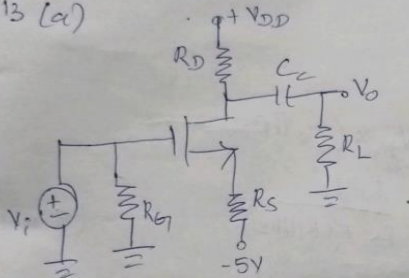 13 (a)
+ VDD
RD
Cc
Vo
RL
Vi
RG
RS
-5V